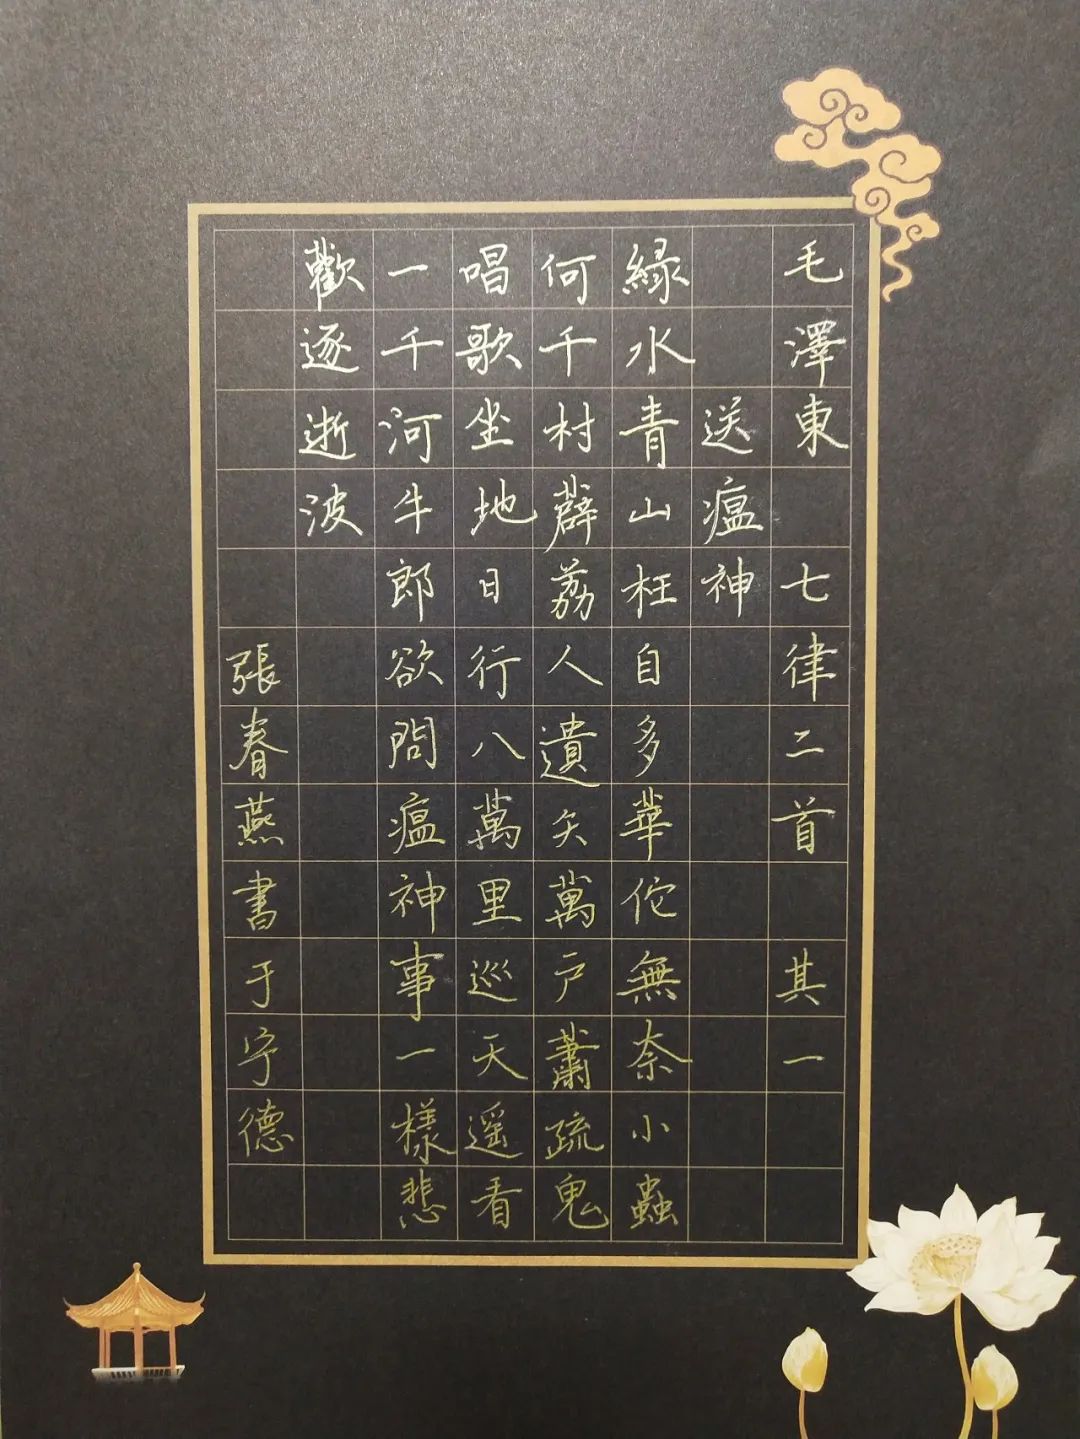 毛澤東 七律二首 其一
送瘟神
緑水青山枉自多華佗無奈小蟲
何千村薜荔人遺矢萬户蕭疏鬼
唱歌坐地日行八萬里巡天遥看
一千河牛郎欲問瘟神事一樣悲
歡逐逝波
張春燕書于宁德